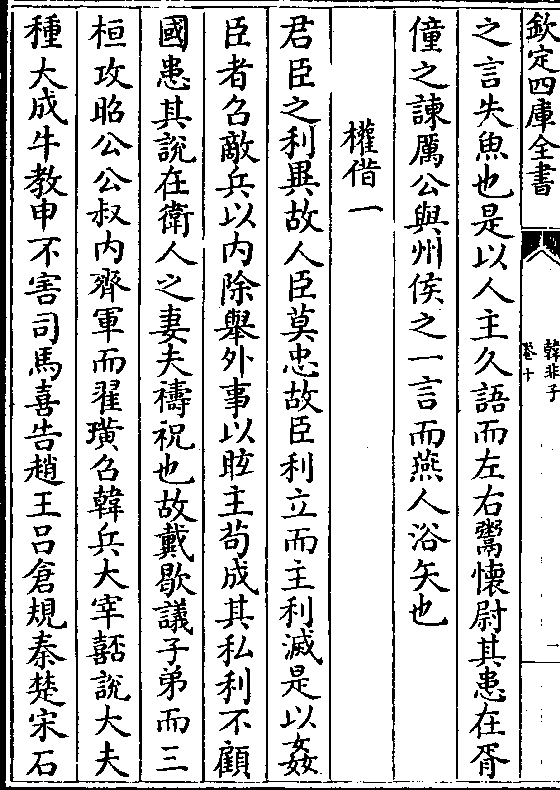 欽定四庫全書
韓非子
卷十
一
之言失魚也是以人主久語而左右鬻懷尉其患在胥
僮之諫厲公與州侯之一言而燕人浴矢也
權借一
君臣之利異故人臣莫忠故臣利立而主利滅是以姦
臣者召敵兵以内除舉外事以眩主苟成其私利不顧
國患其說在衛人之妻夫禱祝也故戴歇議子弟而三
桓攻昭公公叔内齊軍而翟璜召韓兵大宰嚭說大夫
種大成牛教申不害司馬喜告趙王吕倉規秦楚宋石